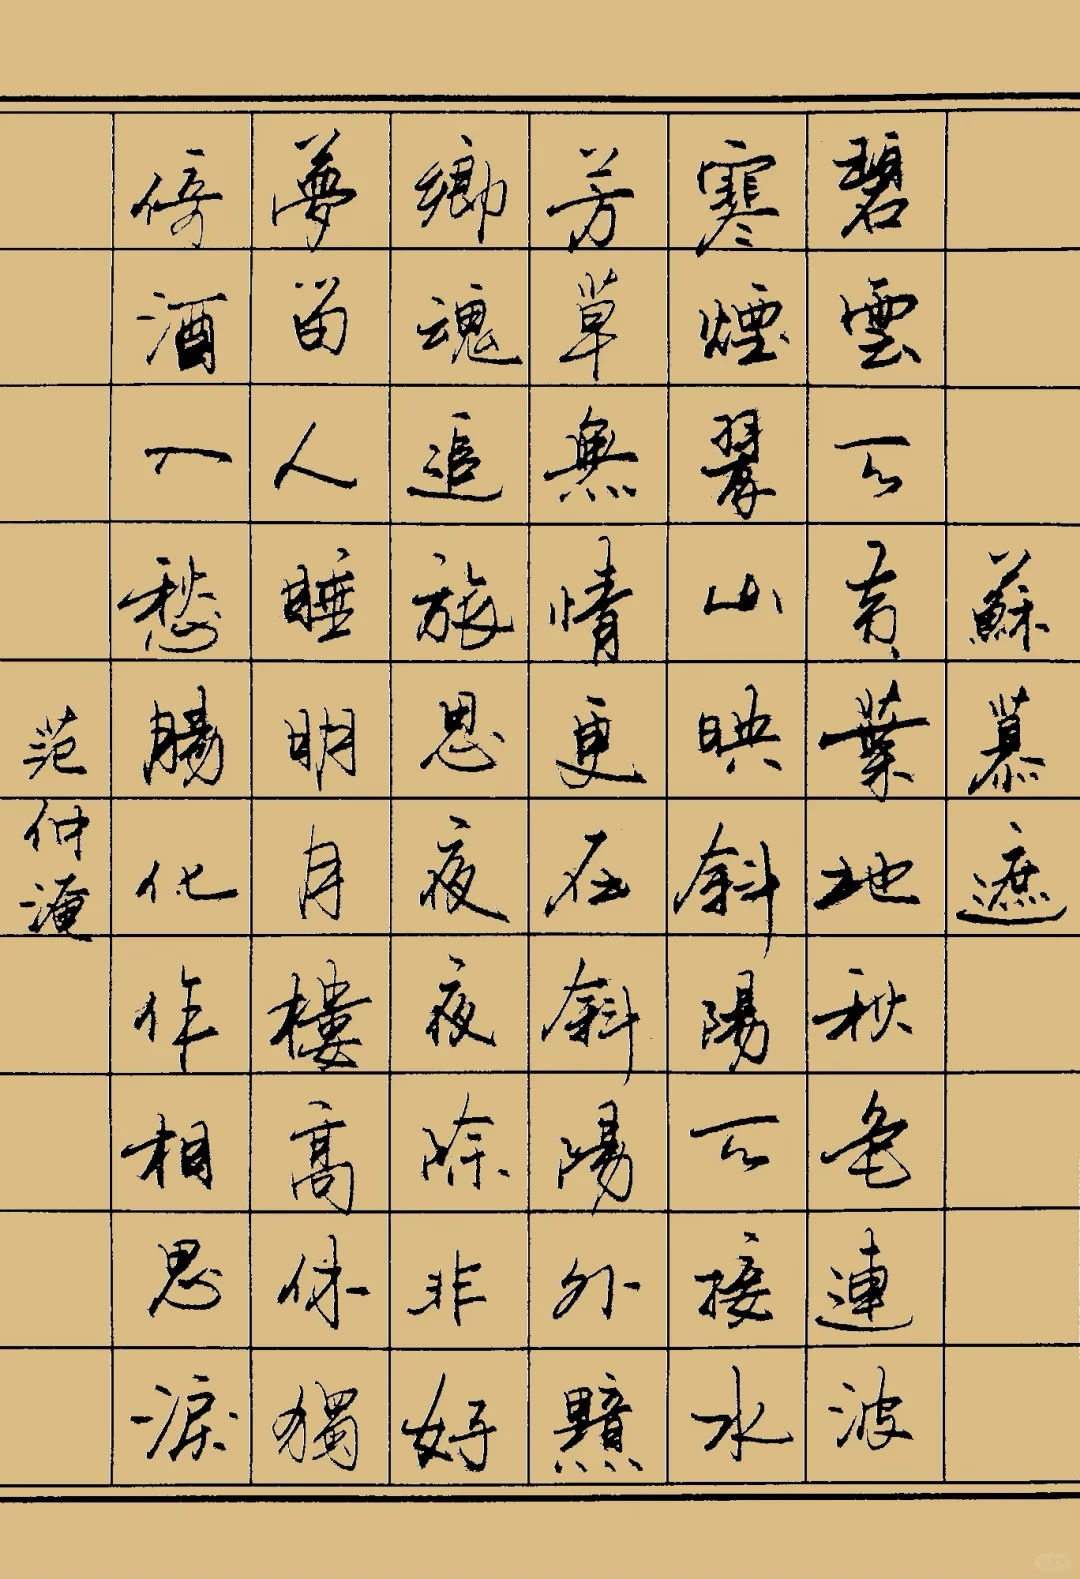 蘇慕遮
碧雲天黃葉地秋色連波
寒煙翠山映斜陽天接水
芳草無情更在斜陽外黯
鄉魂追旅思夜夜除非好
夢留人睡明月樓高休獨
倚酒入愁腸化作相思淚
范仲淹